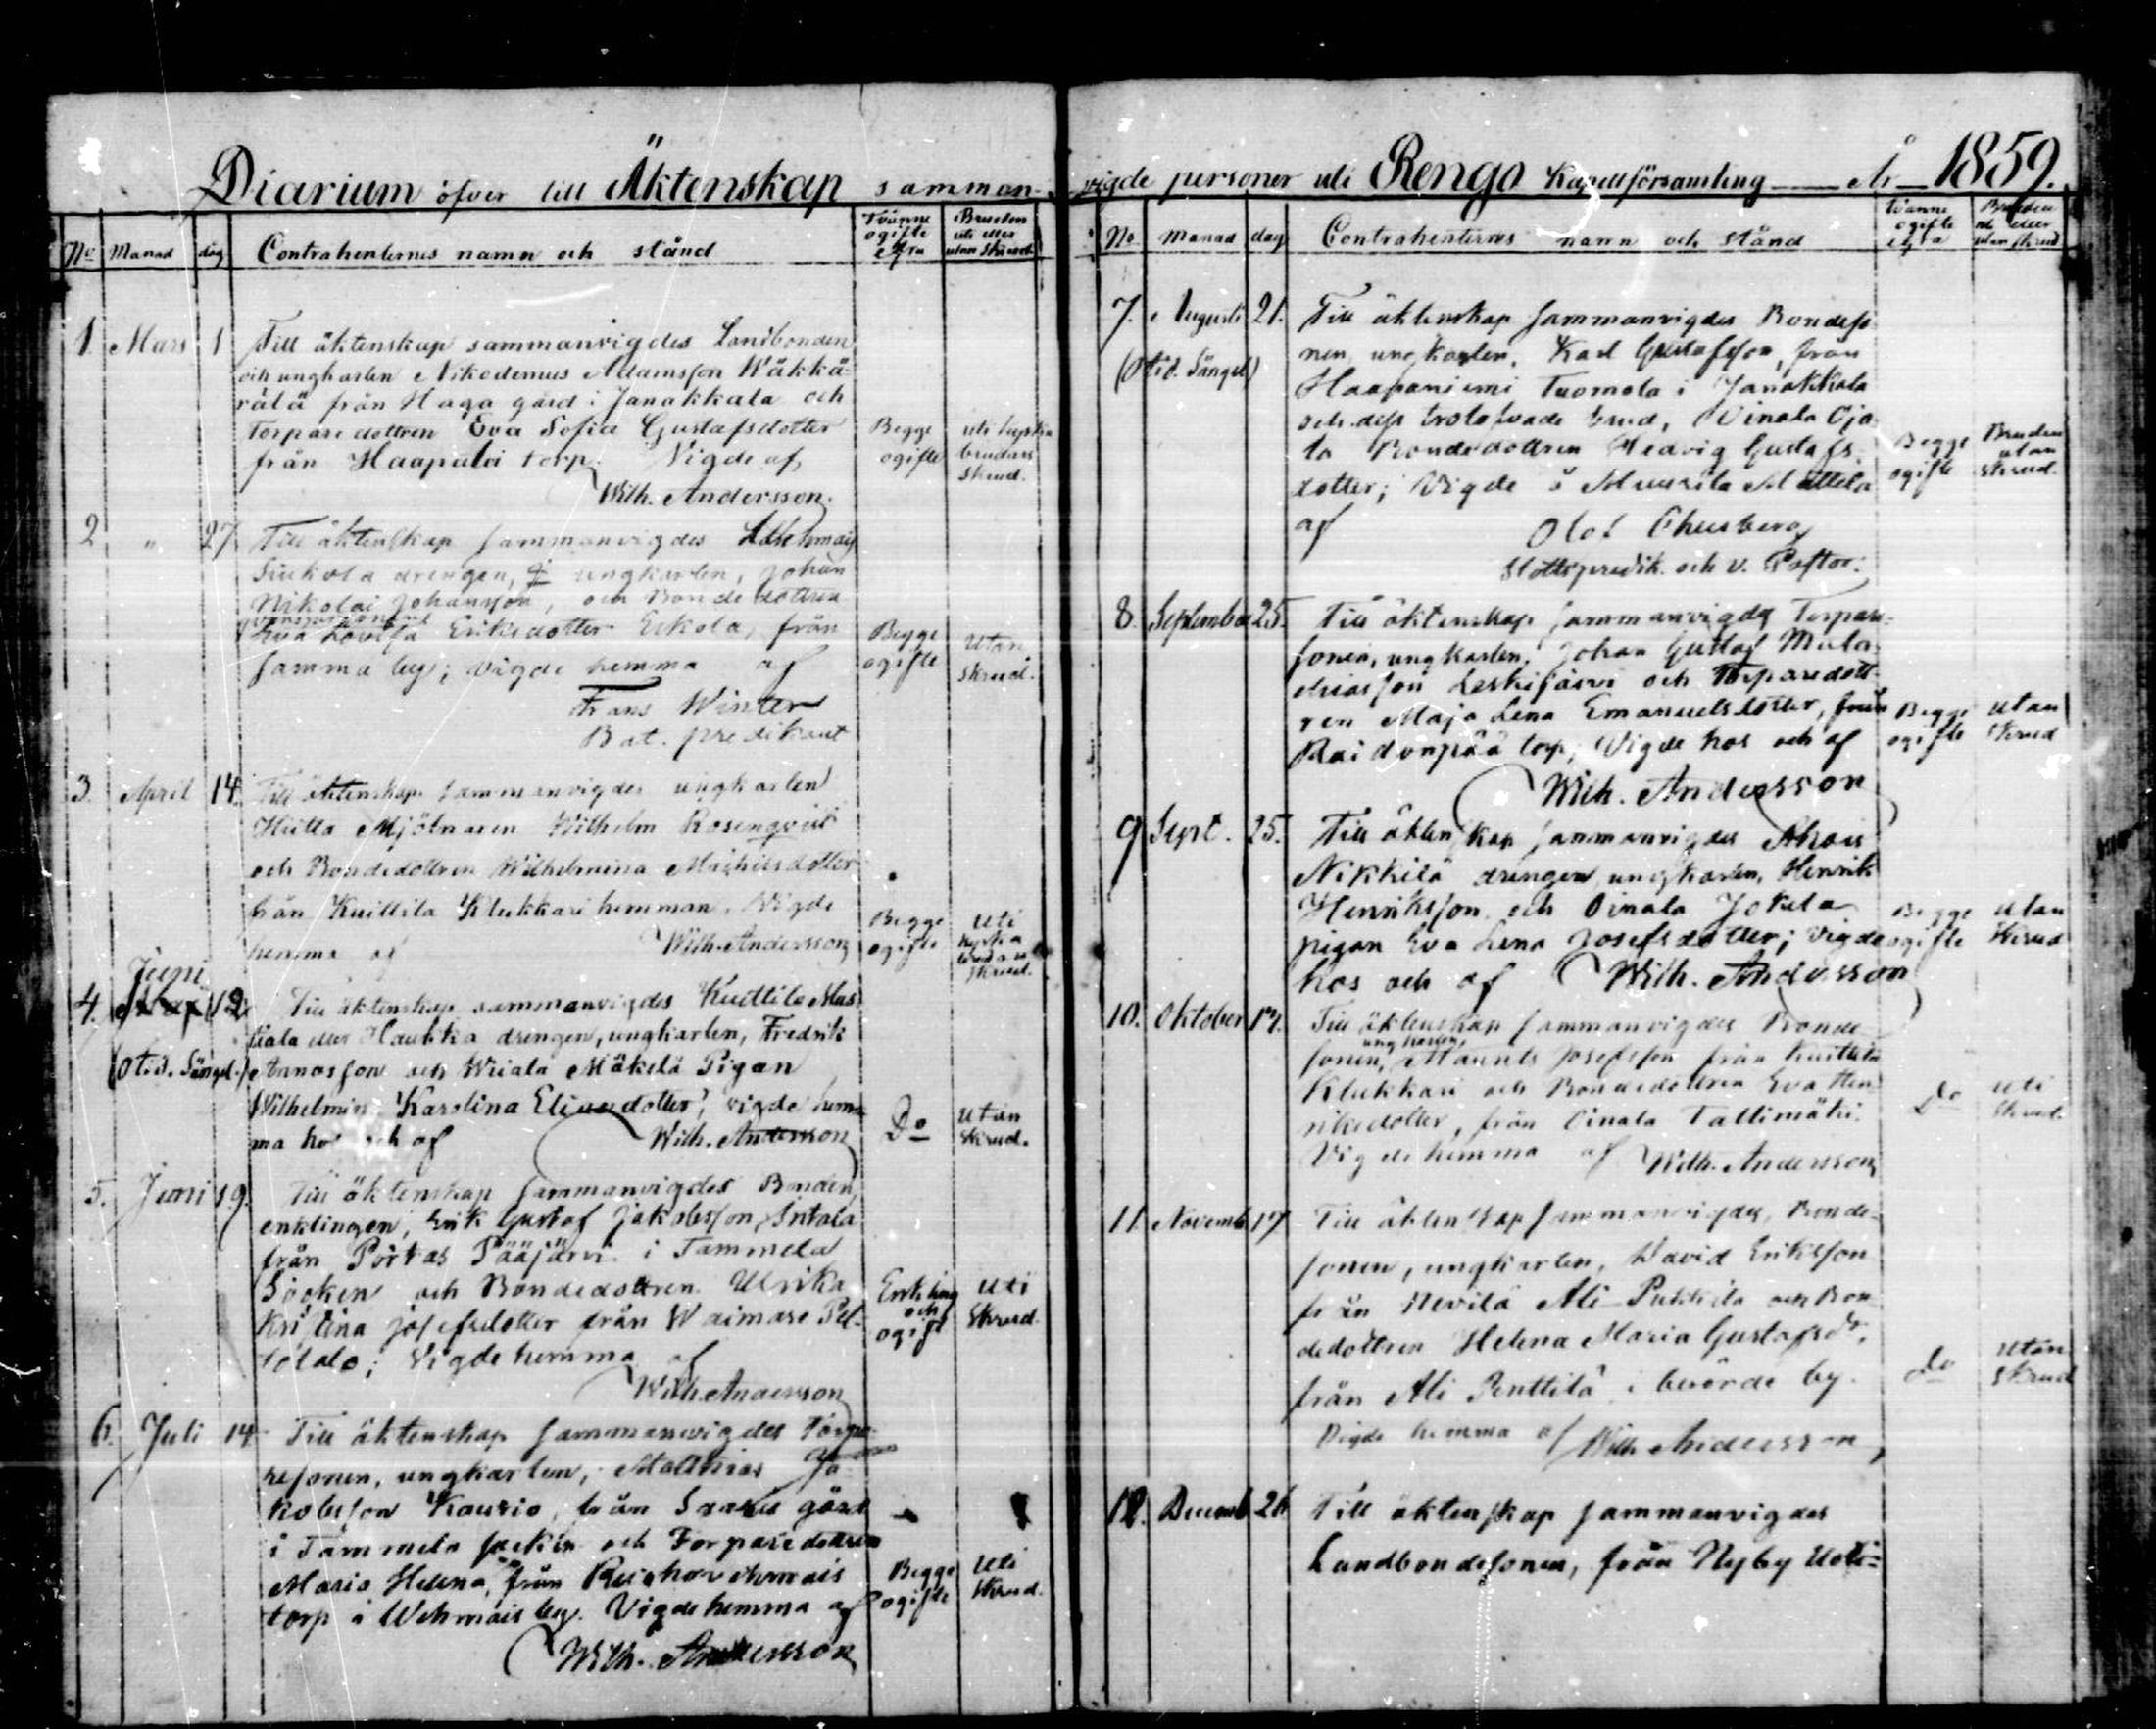 Diarium öfver till Äktenskap samman-
No Manad dag Contrahenternes namn och stånd Tvänne ogifte Bruden uti eller utan skrud
1. Mars 1 Till äktenskap sammanvigdes Landbonden
och ungkarlen Nikodemus Adamsson Wäkkä-
rälä från Haga gård i Janakkala och
torpare dottren Eva Sofia Gustafsdotter Begge uti kyrko
från Haapaloi torp. Vigde af ogifte brudars
Wilh. Andersson. skrud.
2 " 27 Till äktenskap sammanvigdes
drengen, ungkarlen, Johan
Nikolai Johansson, och Bonde dottren
Eva Lovisa Eriksdotter Erkola, från Begge Utan
samma by; vigde hemma af ogifte skrud.
Frans Winter
Bat. predikant
3. April 14. Till äktenskap sammanvigdes ungkarlen
Mjölnaren Wilhelm Rosenqvist
och Bondedottren Wilhelmina Mathiesdotter
från Kuittila Klukkari hemman. Vigde Begge Uti
hemma af Wilh. Andersson ogifte kyrko
skrud.
Juni
4. 12 Till äktenskap sammanvigdes Kuittila Mas-
tiala eller Haukka drengen, ungkarlen, Fredrik
(Otid. Sängel.) Annosson och Wiiala Mäkelä Pigan
Wilhelmin. Karolina Eliaedotter, vigde hem-
ma hos och af Wilh. Andersson Do Utan
skrud.
5. Juni 19. Till äktenskap sammanvigdes Bonden,
enklingen, Erik Gustaf Jakobsson Intala
från Portas Pääjärvi i Tammela
Socken och Bondedottren Ulrika Enkling Uti
Kristina Josefsdotter från Waimaro Pel- och skrud.
totalo; Vigde hemma af ogift
Wilh. Andersson
6. Juli 14 Till äktenskap sammanvigdes Torpa-
resonen, ungkarlen, Matthias Ja-
kobsson Kaurio, från Saaris gård
i Tammela socken och Torparedottren
Maria Helena, från Begge Uti
torp i Wehmais by. Vigde hemma af ogifte skrud.
Wilh. Andersson
vigde personer uti Rengo Kapellförsamling År 1859.
No manad dag Contrahenternes namn och stånd tvänne ogifte Bruden uti eller utan skrud
7. Augusti 21. Till äktenskap sammanvigdes Bondeso-
nen, ungkarlen, Karl Gustafsson, från
(Otid. Sängel) Haapaniemi Tuomola i Janakkala
och dess trolofvade brud, Oinala Oja-
la Bondedottren Hedvig Gustafs- Begge Bruden
dotter; Vigde å Muurila Mattila ogifte utan skrud.
af Olof Chusberg
Slottspredik. och v. Pastor.
8. September 25. Till äktenskap sammanvigdes Torpare-
sonen, ungkarlen, Johan Gustaf Mata-
eliasson Leskijärvi och Torparedott-
ren Maja Lena Emanuelsdotter, från Begge utan
Raidonpää torp; Vigde hos och af ogifte skrud
Wilh. Andersson
9 Sept. 25. Till äktenskap sammanvigdes Ahois
Nikkilä drengen, ungkarlen, Henrik
Henriksson och Oinala Jokela Begge utan
pigan Eva Lena Josefsdotter; Vigde ogifte skrud
hos och af Wilh. Andersson
10. Oktober 17. Till äktenskap sammanvigdes Bonde-
ungkarlen,
sonen, Maunts Josefsson från Kuittila
Klukkari och Bondedottren Eva Hen- Do uti
riksdotter, från Oinala Tallimäki. skrud.
Vigde hemma af Wilh. Andersson
11. Novemb 17 Till äktenskap sammanvigdes, Bonde-
sonen, ungkarlen, David Eriksson
från Nevilä Ali Pukkila och Bon-
dedottren Helena Maria Gustafsdr. Do utan
från Ali Penttilä i berörde by. skrud
Vigde hemma af Wilh Andersson
12. Decemb 26 Till äktenskap sammanvigdes
Landbondesonen, från Nyby Uoti-